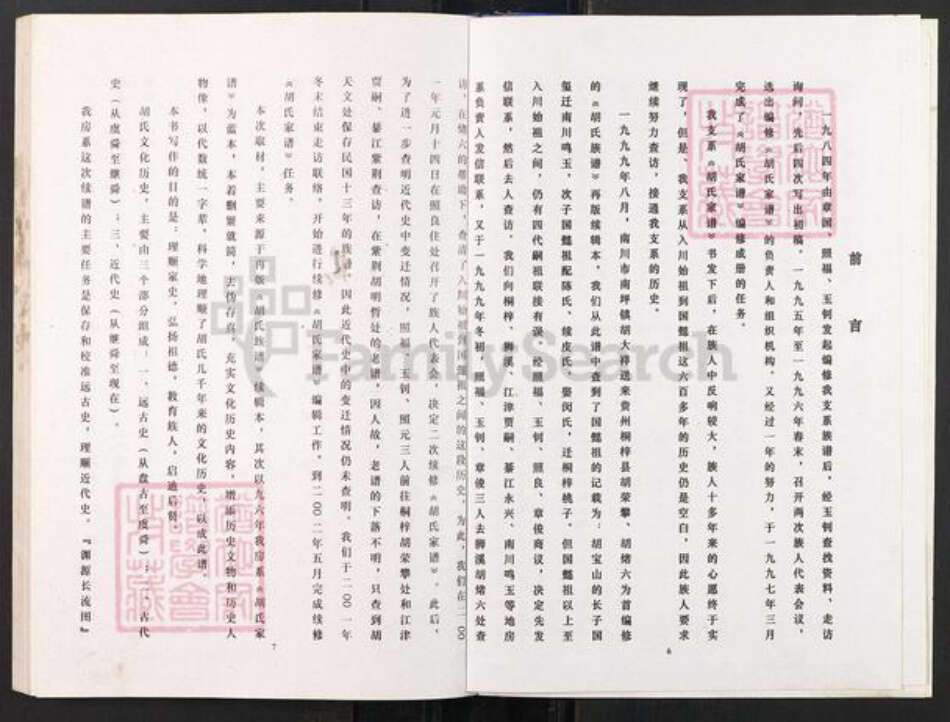 前言
一九八四年由章国、照福、玉钊发起编修我支系族谱后，经玉钊查找资料、走访
询问，先后四次写出初稿。一九九五年至一九九六年春末，召开两次族人代表会议，
选出编修《胡氏家谱》的负责人和组织机构。又经过一年的努力，于一九九七年三月
完成了《胡氏家谱》编修成册的任务。
我支系《胡氏家谱》书发下后，在族人中反响较大，族人十多年来的心愿终于实
现了，但是、我支系从入川始祖到国懿祖这六百多年的历史仍是空白，因此族人要求
继续努力查访，接通我支系的历史。
一九九九年八月，南川市南坪镇胡大祥送来贵州桐梓县胡荣攀、胡绪六为首编修
的《胡氏族谱》再版续辑本，我们从此谱中查到了国懿祖的记载为：胡宝山的长子国
玺迁南川鸣玉，次子国懿祖配陈氏、续皮氏、娶闵氏，迁桐梓桃子。但国懿祖以上至
入川始祖之间，仍有四代嗣祖联接有误。经照福、玉钊、照良、章俊商议，决定先发
信联系，然后去人查访。我们向桐梓、狮溪、江津贾嗣、綦江永兴、南川鸣玉等地房
系负责人发信联系，又于一九九九年冬初，照福、玉钊、章俊三人去狮溪胡绪六处查
6
访，在绪六的帮助下，查清了入川始祖到国懿祖之间的这段历史。为此，我们在二〇〇
一年元月十四日在照良住处召开了族人代表会，决定二次续修《胡氏家谱》。此后，
为了进一步查明近代史中变迁情况，照福、玉钊、照元三人前往桐梓胡荣攀处和江津
贾嗣、綦江紫荆查访，在紫荆胡明哲处的老谱，因人故，老谱的下落不明，只查到胡
天文处保存民国十三年的族谱，因此近代史中的变迁情况仍未查明。我们于二〇〇一年
冬末结束走访联络，开始进行续修《胡氏家谱》编辑工作。到二〇〇二年五月完成续修
《胡氏家谱》任务。
本次取材，主要来源于再版《胡氏族谱》续辑本，其次以九六年我房系《胡氏家
谱》为蓝本，本着删繁就简，去伪存真，充实文化历史内容，增添历史文物和历史人
物像，以代数统一字辈，科学地理顺了胡氏几千年来的文化历史，以成此谱。
本书写作的目的是：理顺家史，弘扬祖德，教育族人，启迪后贤。
胡氏文化历史，主要由三个部分组成：一、远古史（从盘古至虞舜）；二、古代
史（从虞舜至继舜）；三、近代史（从继舜至现在）。
我房系这次续谱的主要任务是保存和校准远古史，理顺近代史。『源源长流图』
7
FamilySearch